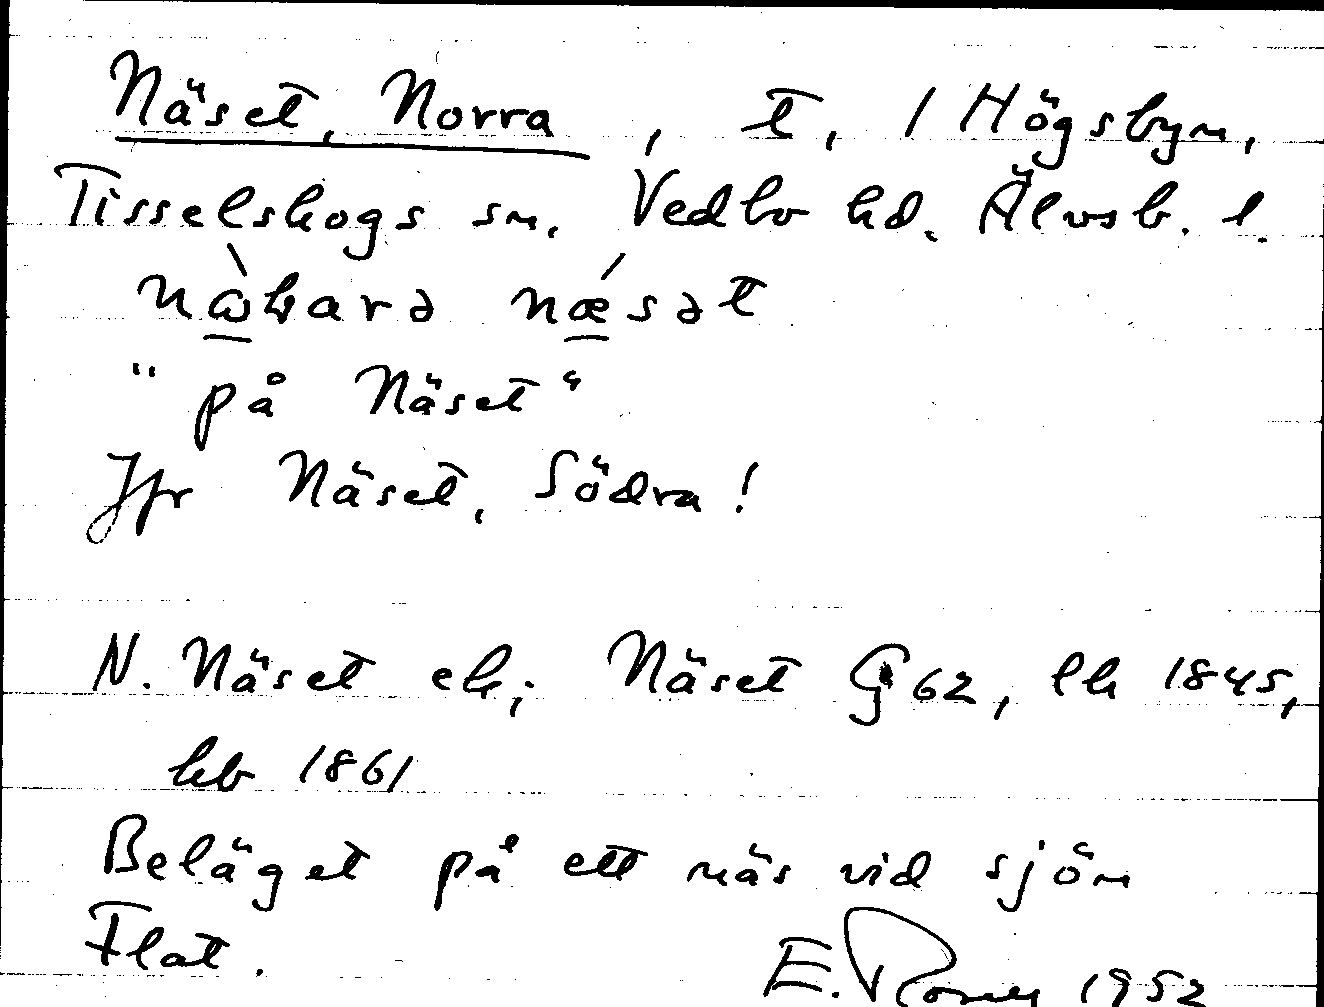 Näset, Norra, t, 1 Högsbyn,
Tisselskogs sn. Vedbo hd. Älvsb. l.
nɷ̀barə nǽsət
"på Näset"
Jfr Näset, Södra!
N. Näset ek; Näset G 62, lh 1845,
kb 1861
Beläget på ett näs vid sjön
Flat. E. 1952